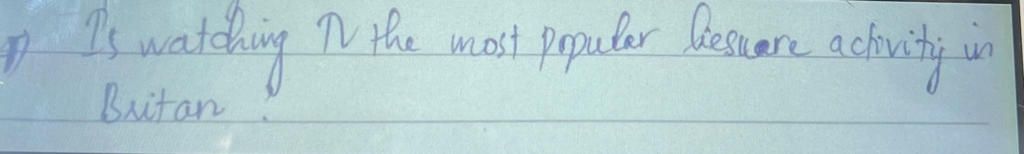 1) Is watching TV the most popular liesuare activity in
Britan ?